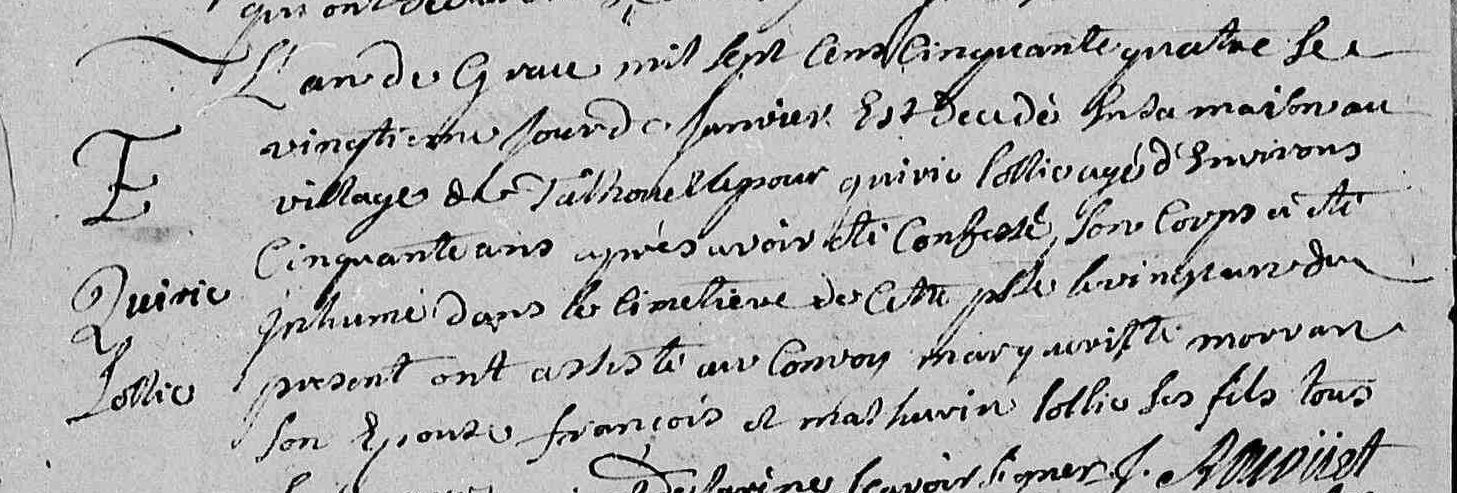 qui ont
L'an de Grace mil sept Cens Cinquante quatre le
vingtieme jour de Janvier Est Decedé En sa maison au
E
village de Talhouet pour quiric lollic agé d'Environs
Cinquante ans après avoir eté Confessé, Son Corps a eté
Quiric
jnhumé dans le Cimetiere de Cette psse le vingt un du
Lollic
present ont assisté au Convoy margueritte morvan
son Epouse françois et mathurin lollic ses fils tous
scavoir signer J.